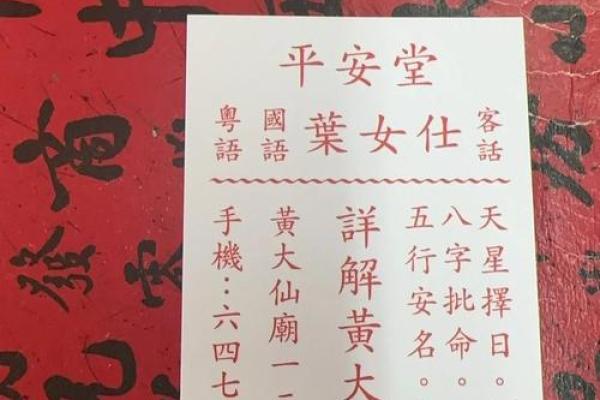 平安堂
粵語
國語
葉女仕
客話
天星擇日。
八字批命。
五行安名。
詳解黃大
黃大仙廟一
手機：六四七
商
發